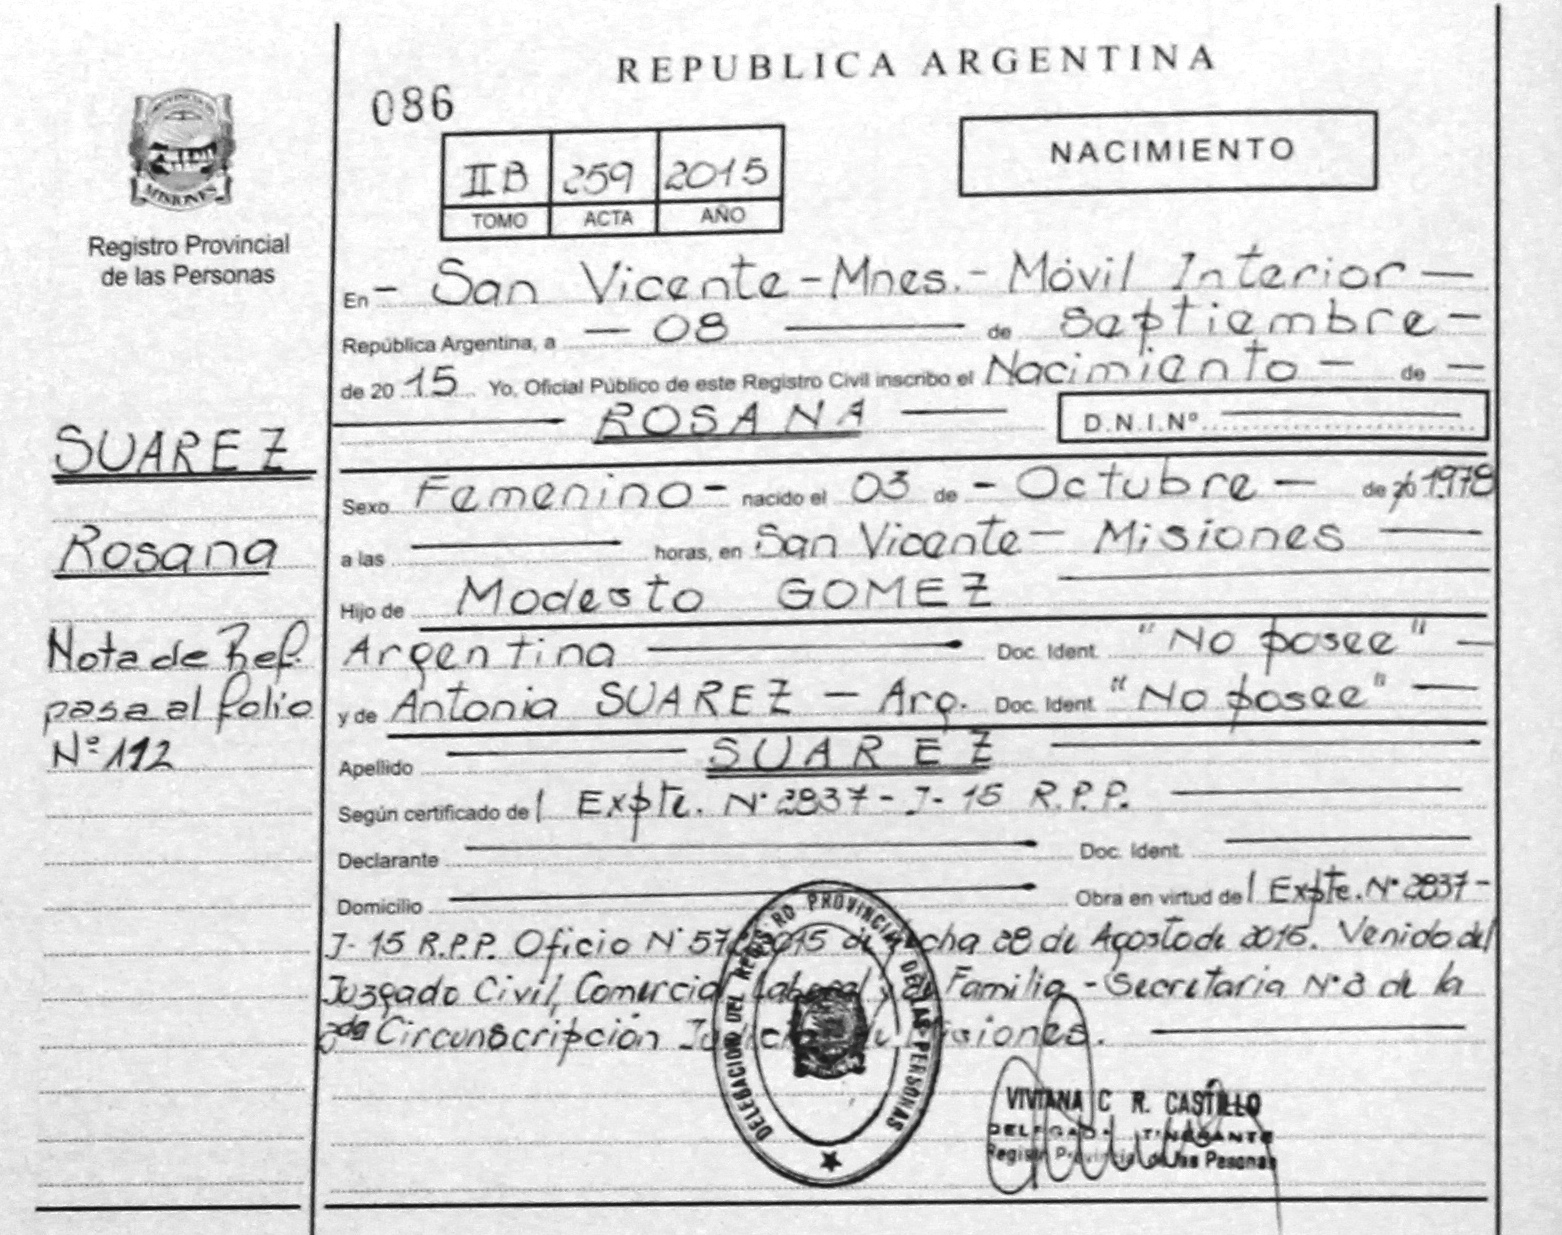 REPUBLICA ARGENTINA
086
IIB 259 2015
TOMO ACTA AÑO
NACIMIENTO
PROVINCIA DE
MISIONES
Registro Provincial
de las Personas
SUAREZ
Rosana
Nota de Ref.
pasa al folio
Nº 192
En - San Vicente - Mnes. - Móvil Interior —
República Argentina, a — 08 — de septiembre -
de 20 15 Yo, Oficial Público de este Registro Civil inscribo el Nacimiento - de —
— ROSANA — D.N.I.Nº —
Sexo Femenino - nacido el 03 de - Octubre — de 20 1978
a las — horas, en San Vicente - Misiones —
Hijo de Modesto GOMEZ —
Argentina — Doc. Ident. "No posee" —
y de Antonia SUAREZ — Arg. Doc. Ident. "No posee" —
Apellido — SUAREZ —
Según certificado de | Expte. Nº 2837 - J - 15 R.P.P. —
Declarante — Doc. Ident. —
Domicilio — Obra en virtud de | Expte. Nº 2837 -
J - 15 R.P.P. Oficio Nº 2015 de fecha 28 de Agosto de 2015. Venido del
Juzgado Civil, Comercial, Laboral y de Familia - Secretaria Nº 3 de la
Circunscripción Judicial de Misiones. —
DELEGACION DEL REGISTRO PROVINCIAL DE LAS PERSONAS
VIVIANA C R. CASTILLO
DELEGADA ITINERANTE
Registro Provincial de las Personas